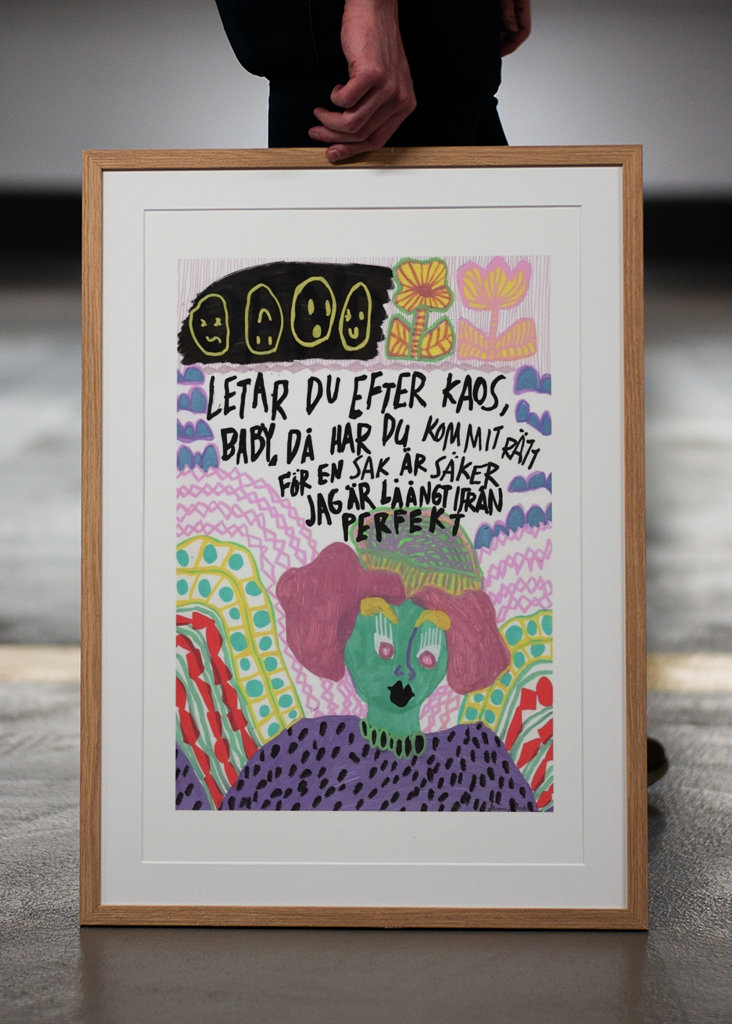 LETAR DU EFTER KAOS,
BABY, DÅ HAR DU KOMMIT RÄTT
FÖR EN SAK ÄR SÄKER
JAG ÄR LÅÅNGT IFRÅN
PERFEKT